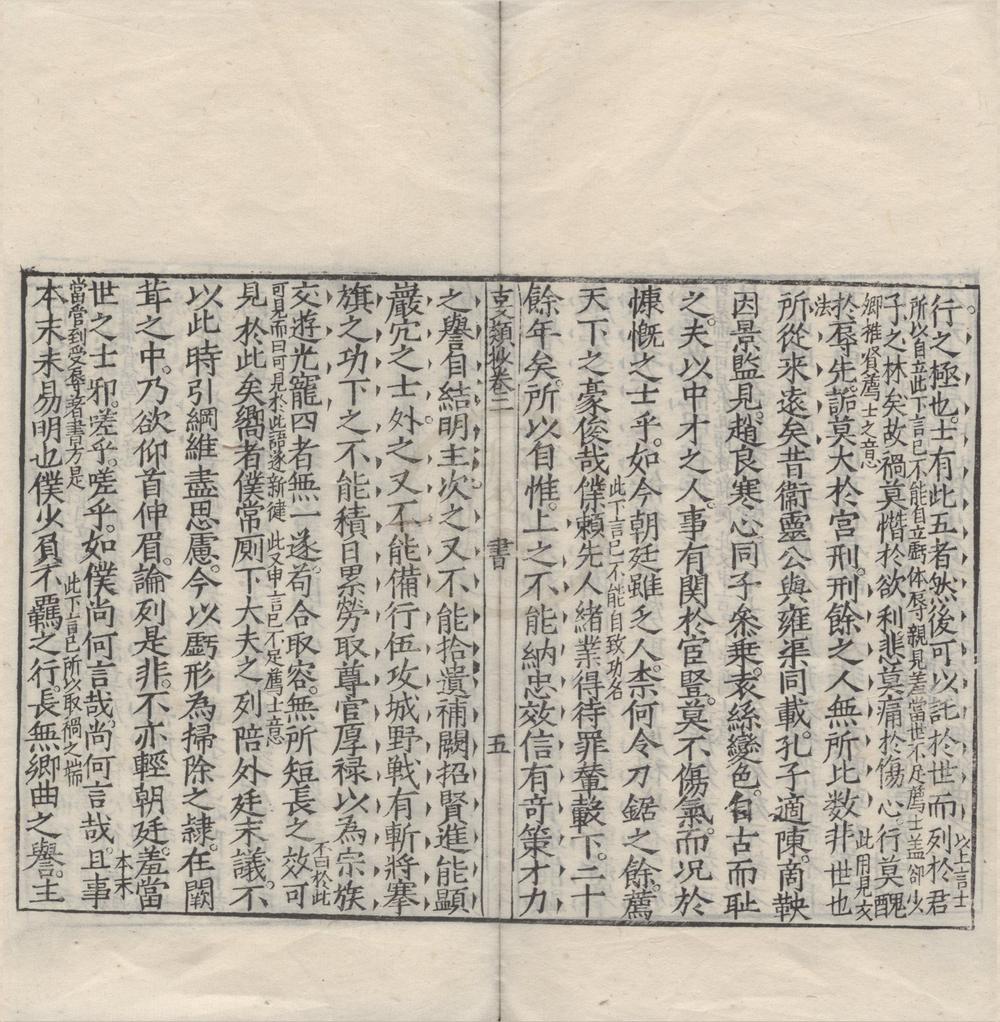 行之極也士有此五者然後可以託於世而列於君
以上言士
所以自立此下言已不能自立虧体辱親見羞當世不足薦士盖卻少
子之林矣故禍莫憯於欲利悲莫痛於傷心行莫醜
卿推賢薦士之意
於辱先詬莫大於宮刑刑餘之人無所比数非一世也
此用見文法
所從來遠矣昔衞靈公與雍渠同載孔子適陳商鞅
因景監見趙良寒心同子叅乗袁絲變色自古而耻
之夫以中才之人事有関於宦竪莫不傷氣而况於
慷慨之士乎如今朝廷雖乏人柰何令刀鋸之餘薦
天下之豪俊哉僕頼先人緒業得待罪輦轂下二十
此下言已不能自致功名
餘年矣所以自惟上之不能納忠效信有奇策才力
文類抄卷二 書 五
之譽自結明主次之又不能拾遺補闕招賢進能顯
巖穴之士外之又不能備行伍攻城野戦有斬將搴
旗之功下之不能積日累勞取尊官厚禄以為宗族
交遊光寵四者無一遂苟合取容無所短長之效可
不曰於此可見而曰可見於此語遂新健
此又申言已不足薦士意
見於此矣嚮者僕常厠下大夫之列陪外廷末議不
以此時引綱維盡思慮今以虧形為掃除之隷在闒
茸之中乃欲仰首伸眉論列是非不亦輕朝廷羞當
世之士邪嗟乎嗟乎如僕尚何言哉尚何言哉且事
本末當嘗到受辱著書方是
此下言已所以取禍之端
本末未易明也僕少負不羈之行長無鄉曲之譽主